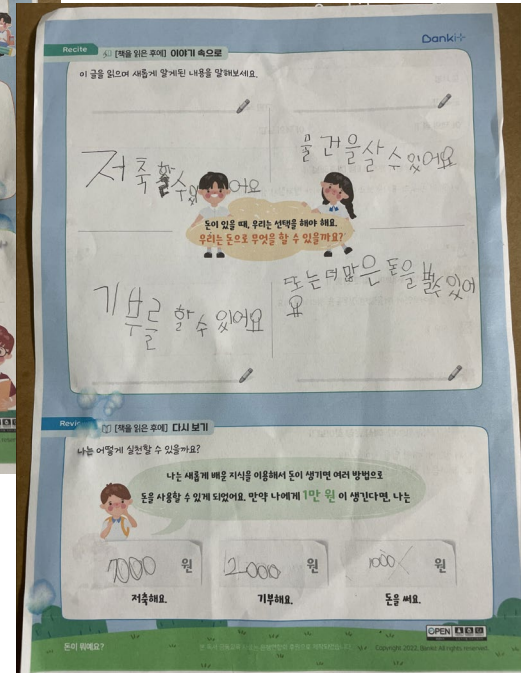 Banki
Recite [책을 읽은 후에] 이야기 속으로
이 글을 읽으며 새롭게 알게된 내용을 말해보세요.
저축할수있어요
물건을살수있어요
돈이 있을 때, 우리는 선택을 해야 해요.
우리는 돈으로 무엇을 할 수 있을까요?
기부를 할수 있어요
또는더많은 돈을 벌수있어
요
[책을 읽은 후에] 다시 보기
나는 어떻게 실천할 수 있을까요?
나는 새롭게 배운 지식을 이용해서 돈이 생기면 여러 방법으로
돈을 사용할 수 있게 되었어요. 만약 나에게 1만 원 이 생긴다면, 나는
7000 원
2000 원
1000 원
저축해요.
기부해요.
돈을 써요.
OPEN
돈이 뭐예요?
Copyright 2022. Banki All rights reserved.